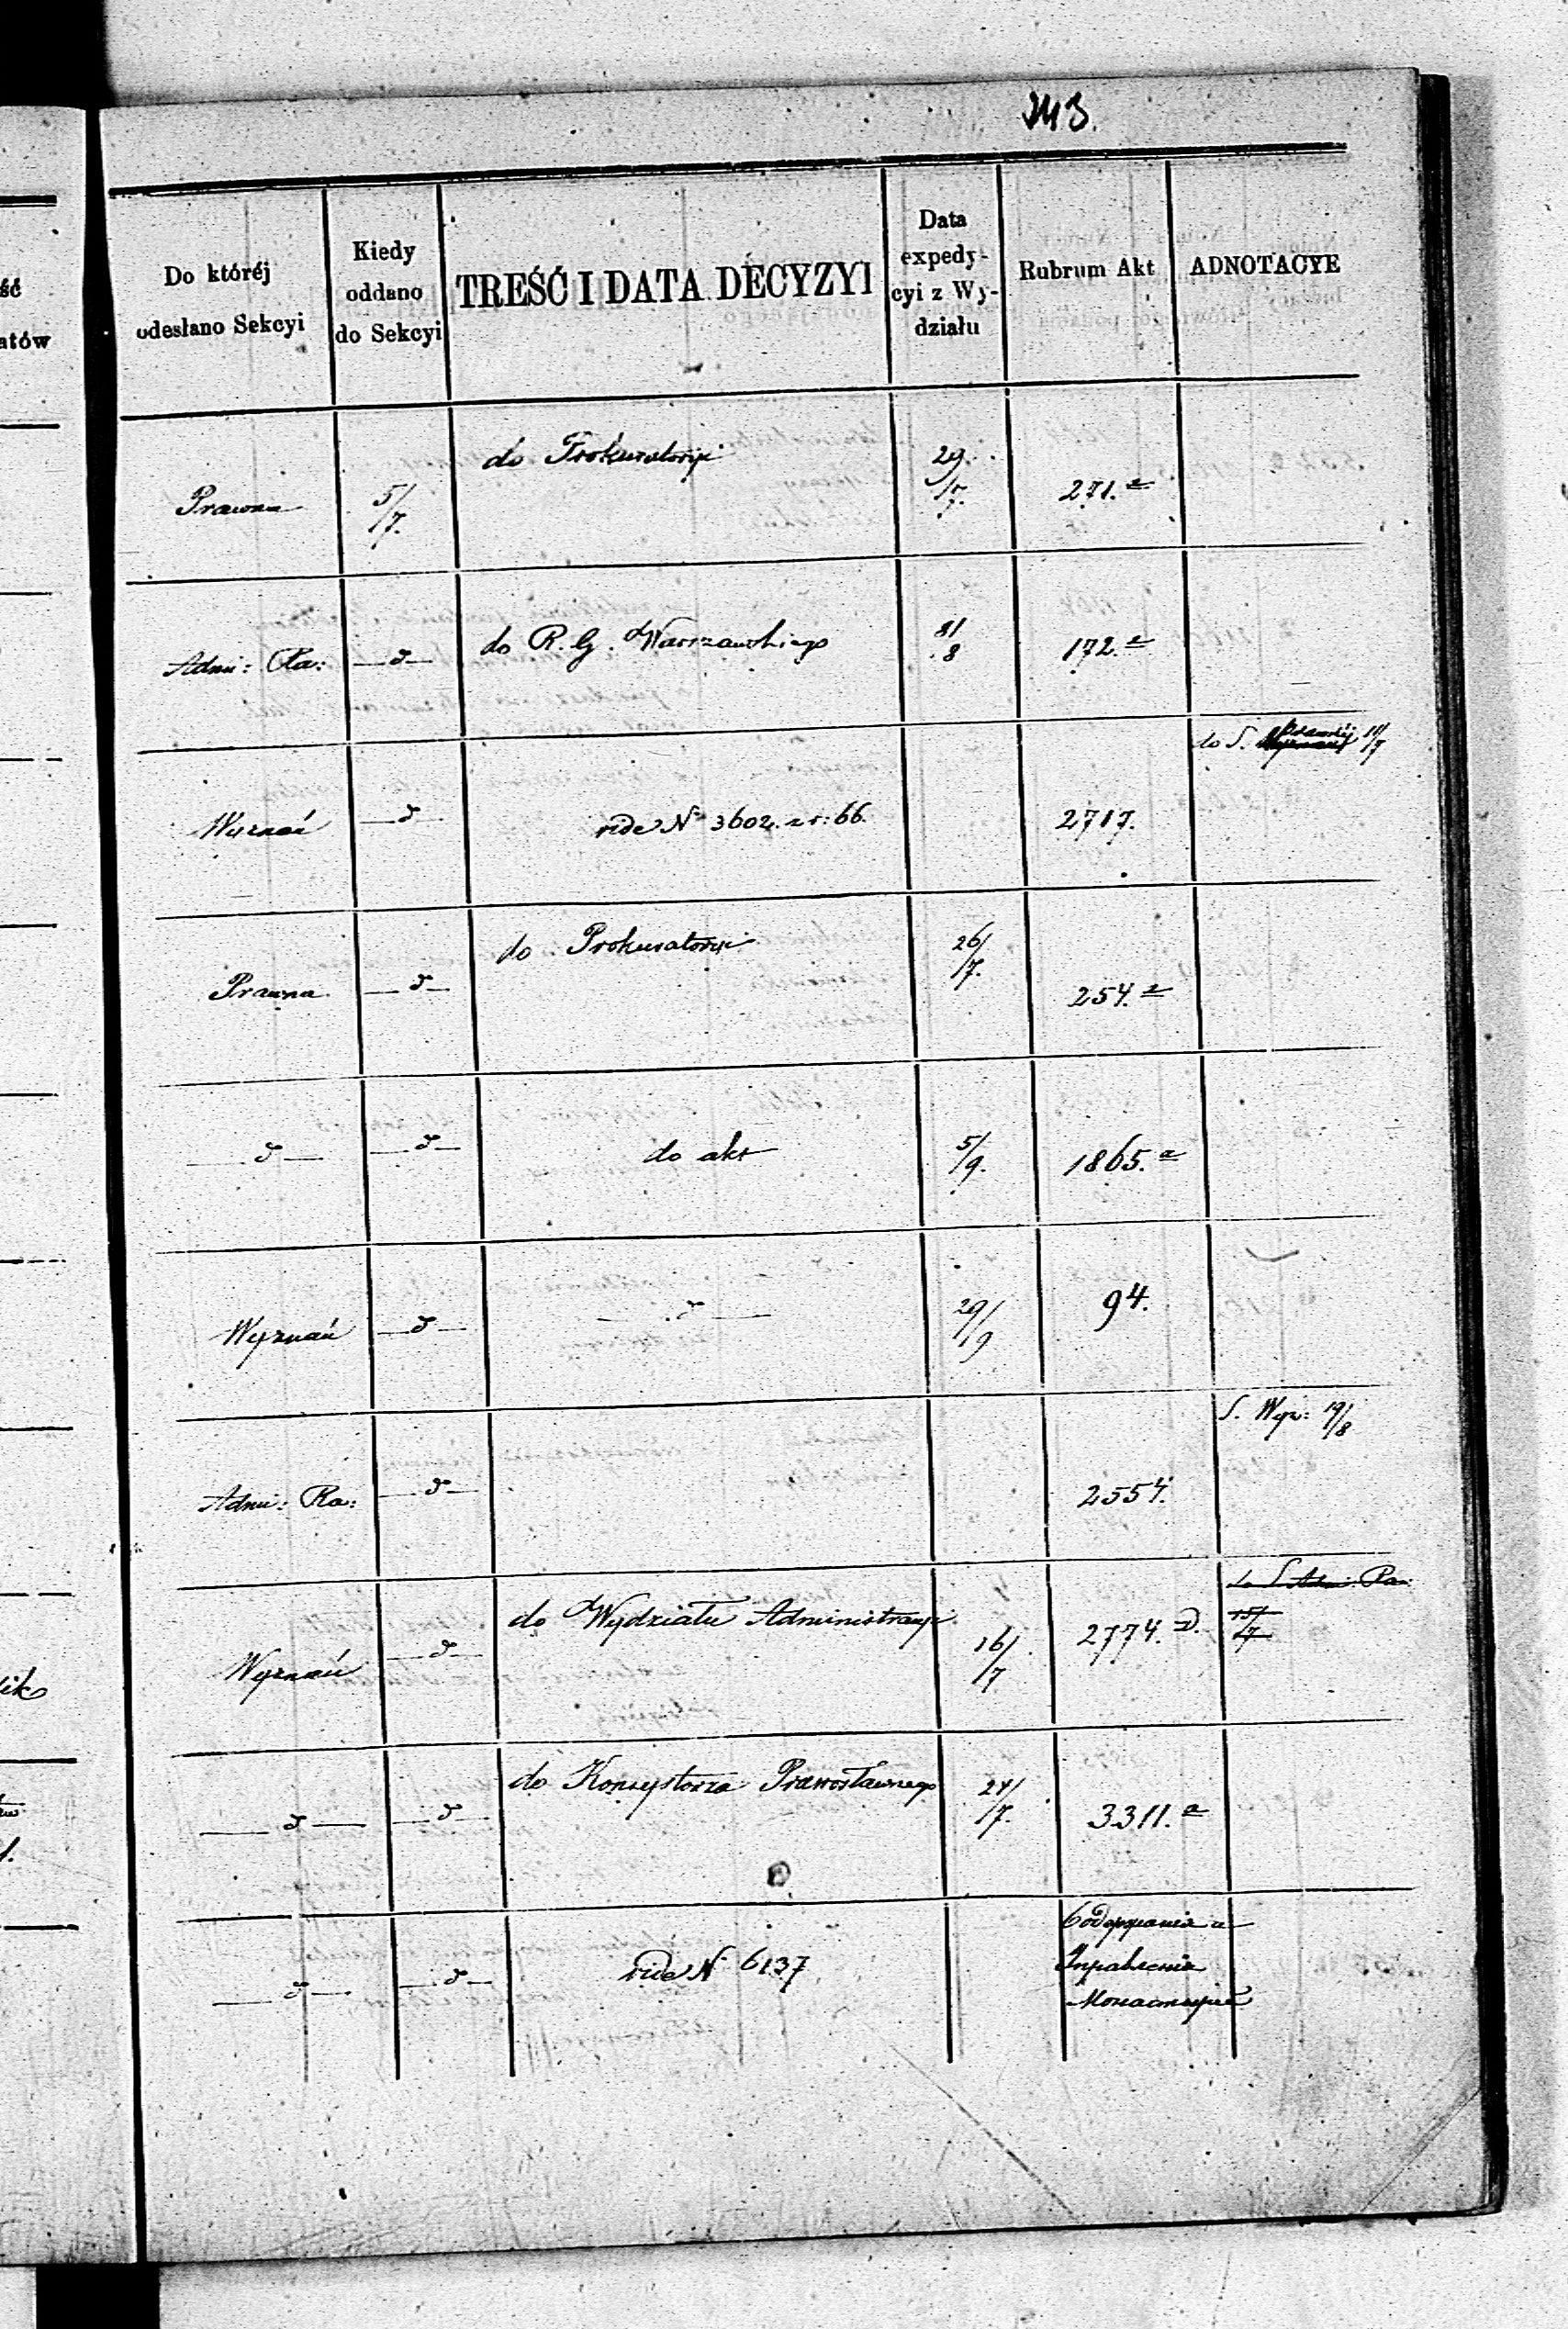 343.
Do któréj
odesłano Sekcyi
Kiedy
oddano
do Sekcyi
TREŚĆ I DATA DECYZYI
Data
expedy-
cyi z Wy-
działu
Rubrum Akt
ADNOTACYE
Prawna
5/7.
do Prokuratoryi
29/7.
271. a
Admi: Ra:
— d —
do R. G. Warszawskiego
31/8
172. a
Wyznań
— d —
vide No 3602. z r: 66.
2717.
do S. Prawnéj 10/7
Prawna
— d —
do Prokuratoryi
26/7.
254. a
— d —
— d —
do akt
5/9.
1865. a
Wyznań
— d —
— d —
29/9
94.
Admi: Ra:
— d —
2554.
S. Wyz: 19/8
Wyznań
— d —
do Wydziału Administracyi
16/7
2774. D.
do S. Admi: Ra:
15/7
— d —
— d —
do Konsystorza Prawosławnego
24/7.
3311. a
— d —
— d —
vide N 6137
Содержания и
Управления
Монастырей
ść
atów